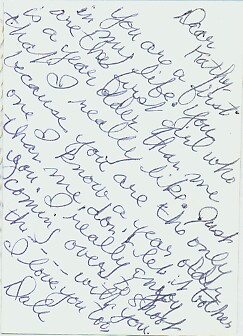 Dear Kathy,
You are a first
in my life. You
are the first girl who
is a year older than me
that I really like. Just
because you are the only
one I know a year older
than me, don't let it bother
you. I really enjoy
coming over to shoot
the with you.
I love you too,
Dale